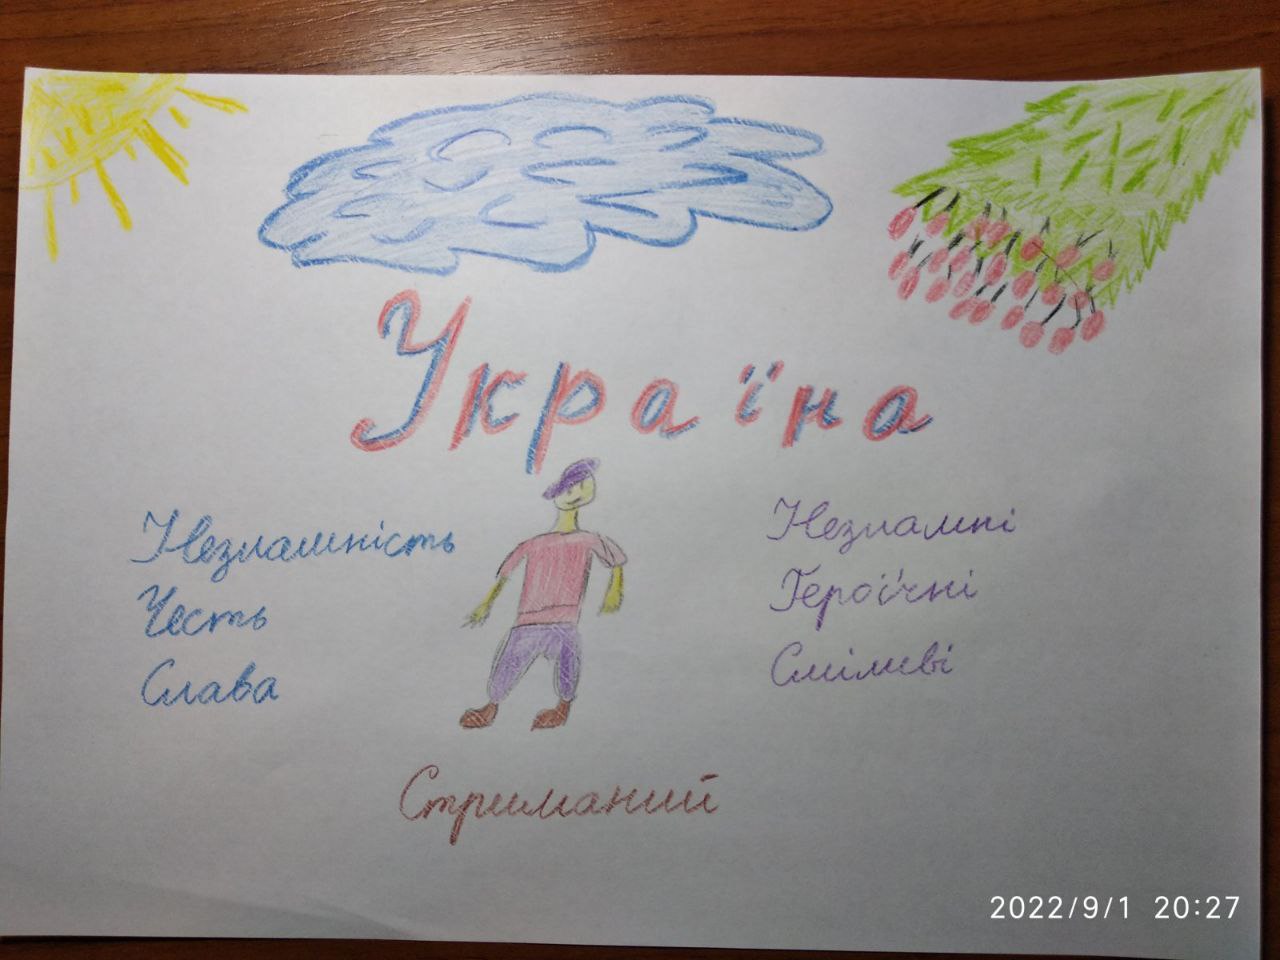 Україна
Незламність
Честь
Слава
Незламні
Героїчні
Сміливі
Стриманий
2022/9/1 20:27